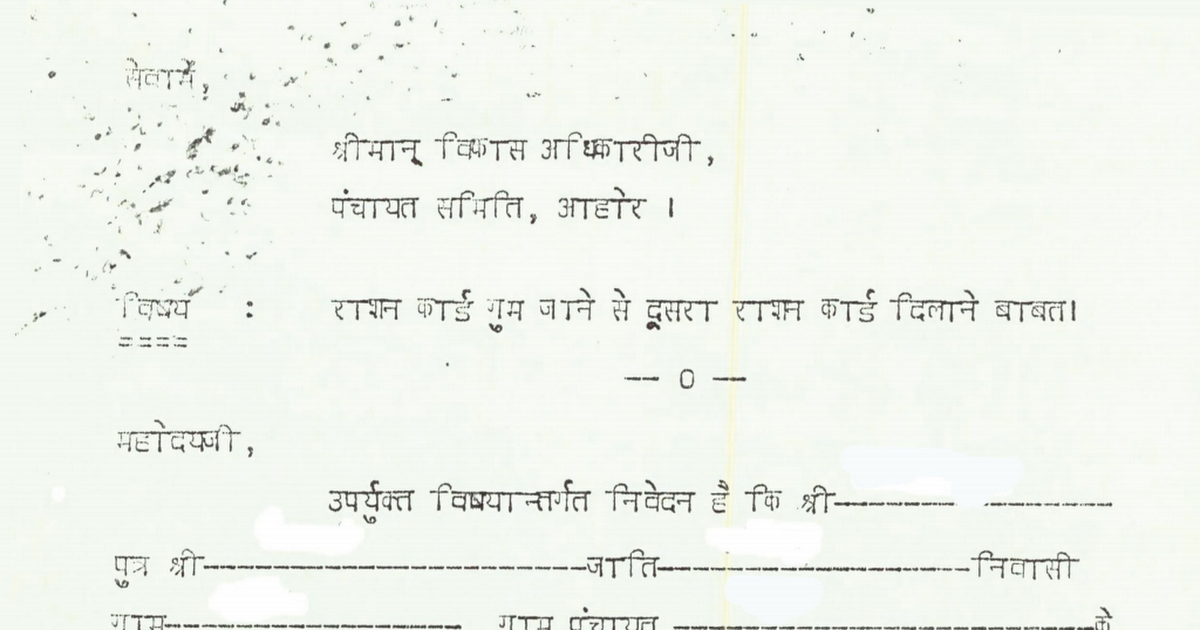 सेवामें,
श्रीमान् विकास अधिकारीजी,
पंचायत समिति, आहोर ।
विषय : राशन कार्ड गुम जाने से दूसरा राशन कार्ड दिलाने बाबत।
====
-- 0 --
महोदयजी,
उपर्युक्त विषयान्तर्गत निवेदन है कि श्री---------- ----------
पुत्र श्री------------------------------जाति------------------------निवासी
ग्राम----------------------- ग्राम पंचायत --------------------------------के